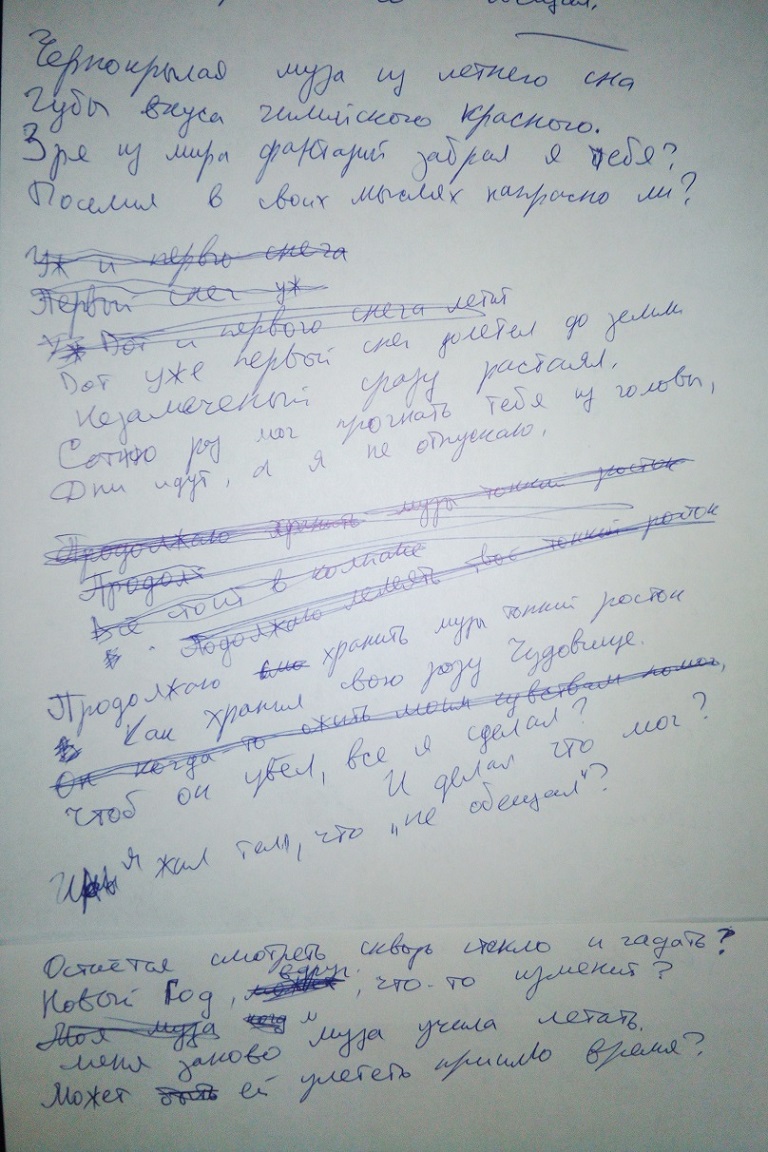 обещал.
Чернокрылая муза из летнего сна
Губы вкуса чилийского красного.
Зря из мира фантазий забрал я тебя?
Поселил в своих мыслях напрасно ли?
Уж и первого снега
Первый снег уж
Уж Вот и первого снега летит
Вот уже первый снег долетел до земли
Незамеченый сразу растаял.
Сотню раз мог прогнать тебя из головы,
Дни идут, а я не отпускаю.
Продолжаю хранить музы тонкий росток
Продолж
Всё стоит в колпаке
Продолжаю лелеять твой тонкий росток
Продолжаю хранить музы тонкий росток
Как хранил свою розу Чудовище.
Он когда то ожить моим чувствам помог,
Чтоб он цвел, все я сделал?
И делал что мог?
И я жил тем, что „не обещал"?
Остаётся смотреть сквозь стекло и гадать?
Новый Год, вдруг, что-то изменит?
Моя муза когда
меня заново муза учила летать.
Может быть ей улететь пришло время?